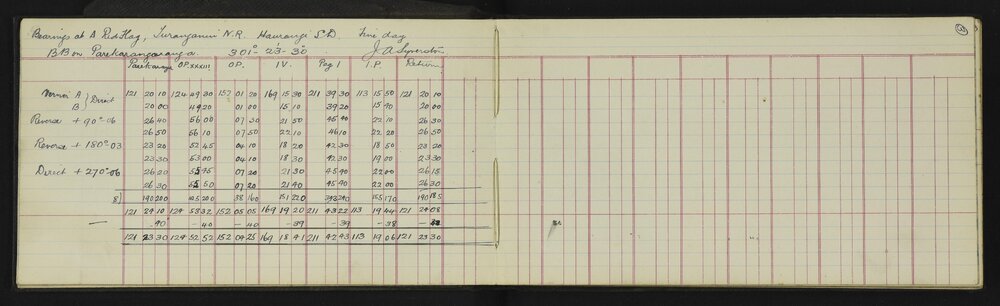 Bearings at A Red Flag, Turanganui N.R. Haurangi S.D. Fine day
BB on Parekarangaranga. 301°-23'-30" J.A.
Parekaranga OP.XXXIII. O.P. IV. Peg 1 I.P. Return
Vernier A } Direct 121 20 10 124 49 30 152 01 20 169 15 30 211 39 30 113 15 50 121 20 10
B 20 00 49 20 01 00 15 10 39 20 15 40 20 00
Reverse + 90°-06 26 40 56 00 07 30 21 50 45 40 22 10 26 30
26 50 56 10 07 50 22 10 46 10 22 20 26 50
Reverse + 180°-03 23 20 52 45 04 10 18 20 42 30 18 50 23 20
23 30 53 00 04 10 18 30 42 30 19 00 23 30
Direct + 270°-06 26 20 55 45 07 20 21 30 45 40 22 00 26 15
26 30 55 50 07 20 21 40 45 40 22 00 26 30
8) 190 200 38 160 151 220 155 170 190 185
121 24 10 124 53 32 152 05 05 169 19 20 211 43 22 113 19 44 121 24 08
— - 40 - 40 - 40 - 39 - 39 - 38 - 38
121 23 30 124 52 52 152 04 25 169 18 41 211 42 43 113 19 06 121 23 30